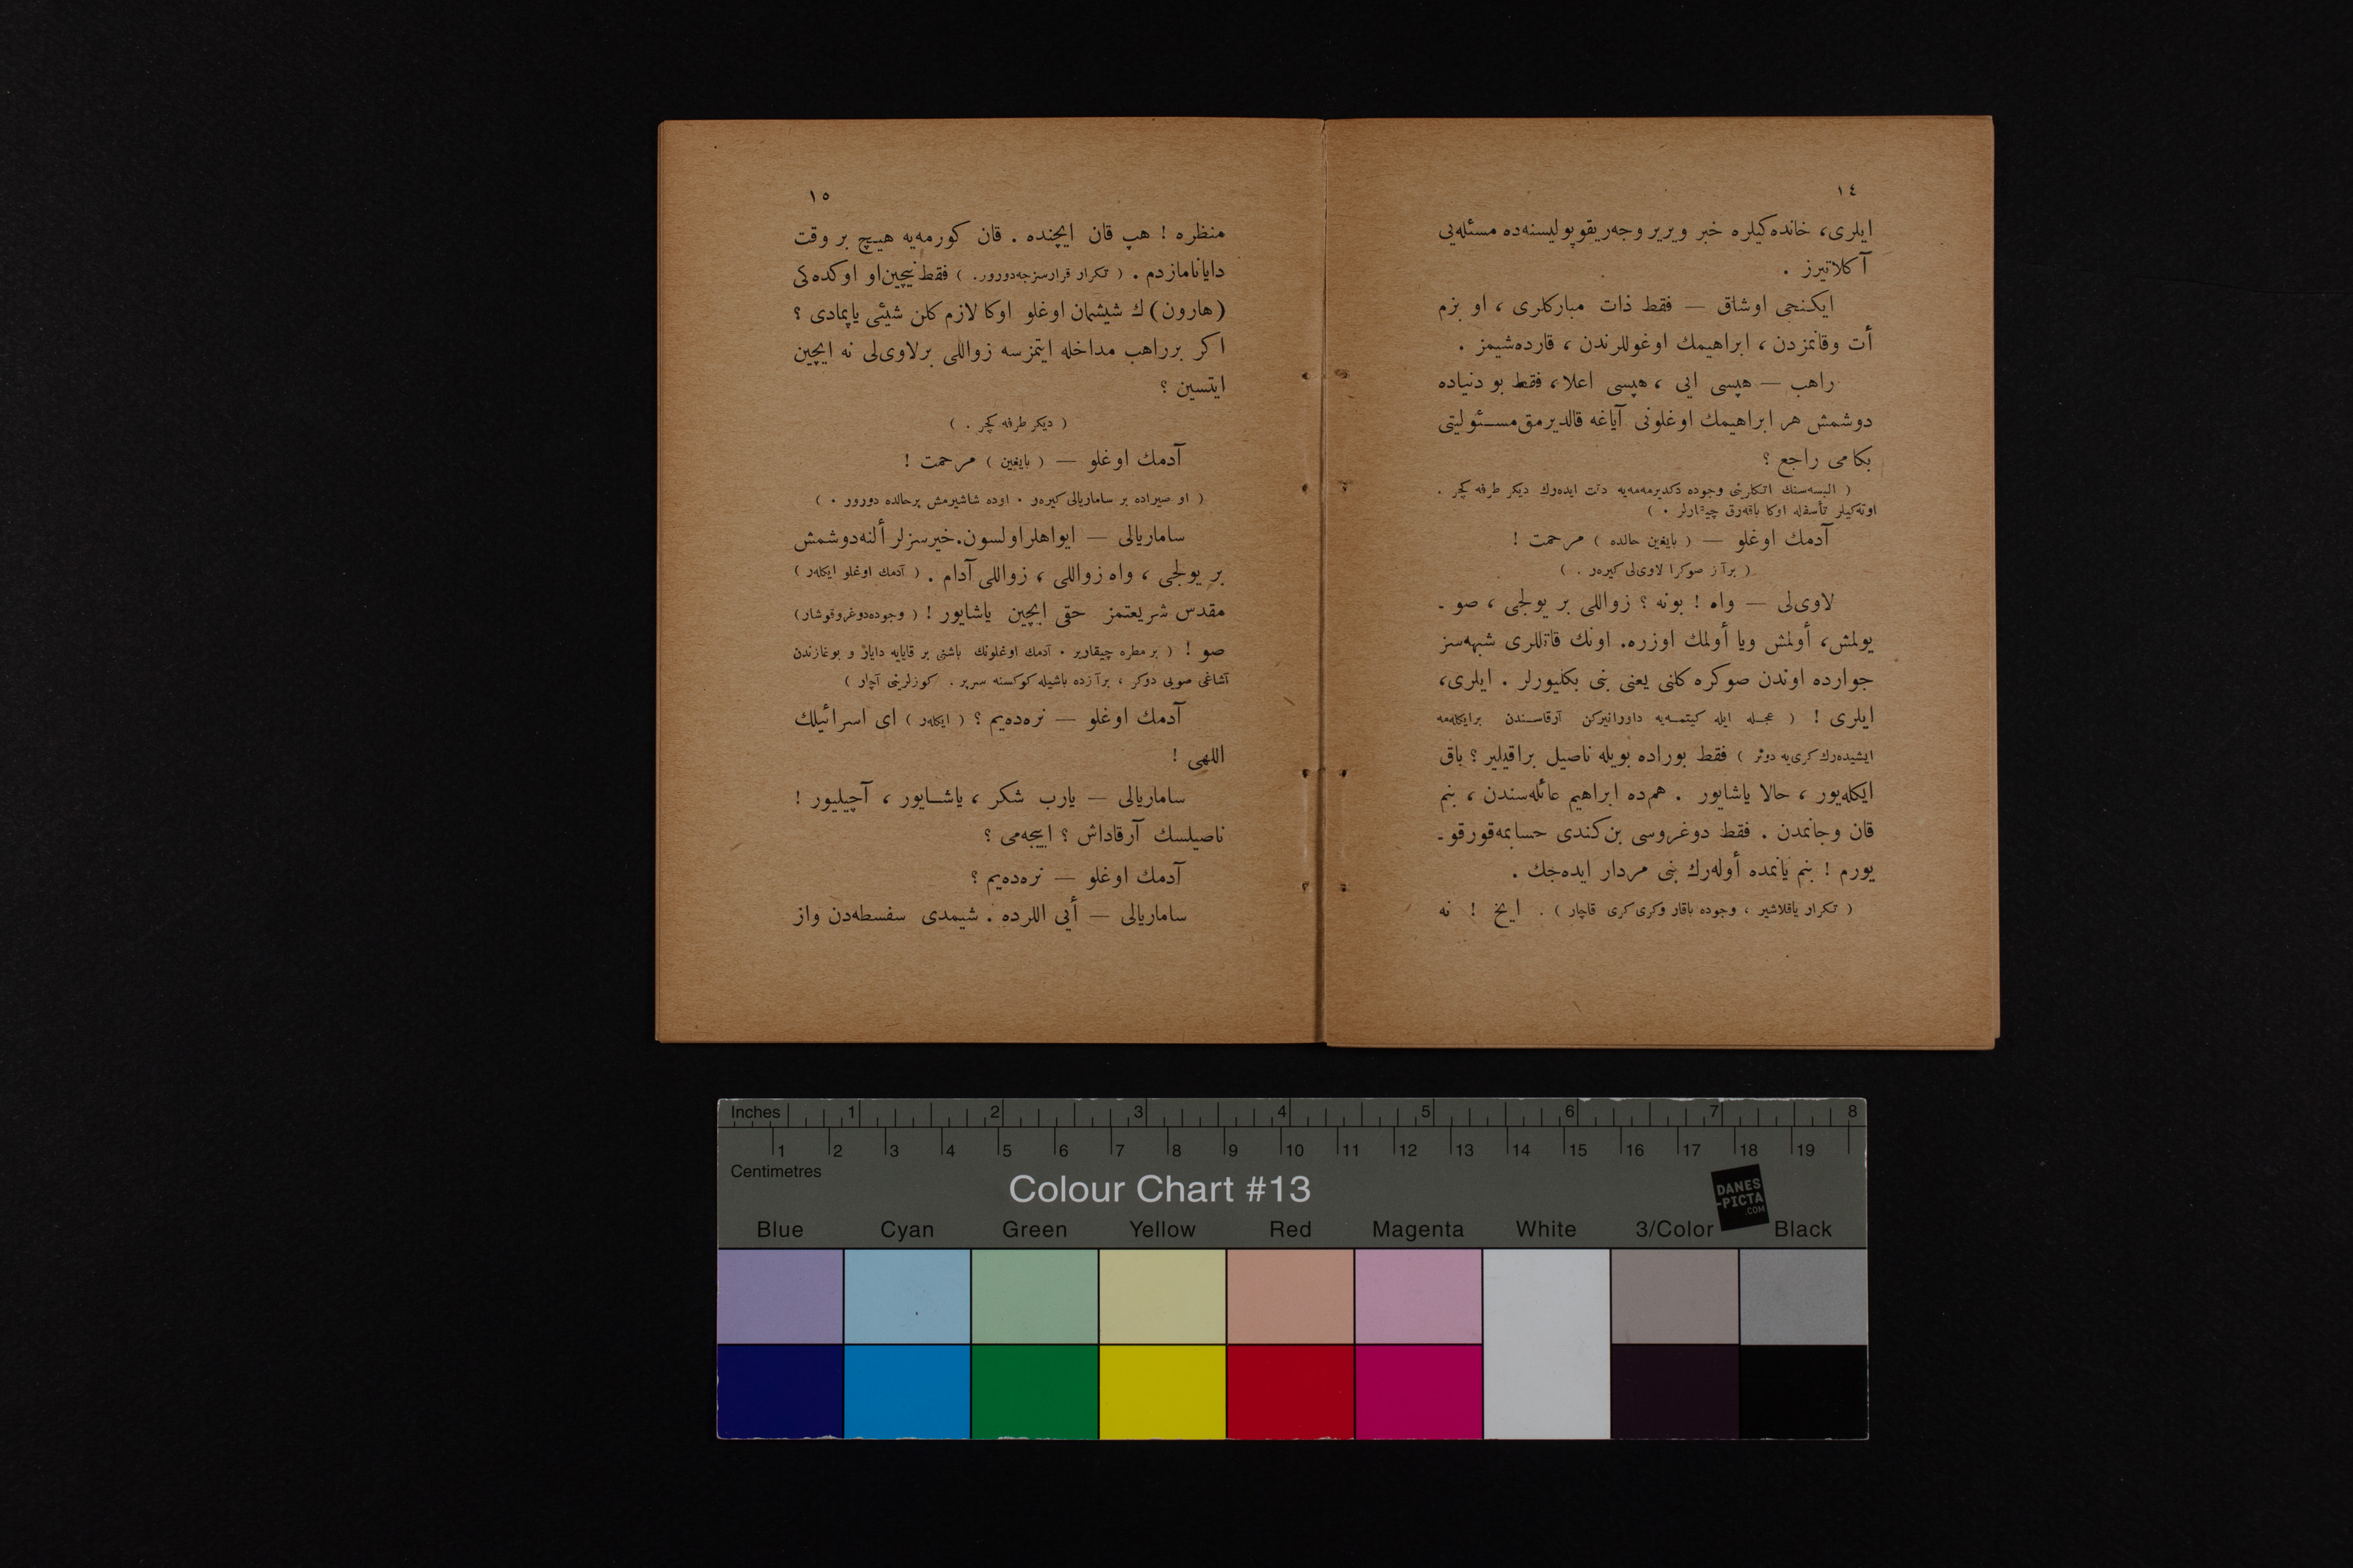 ١٤
ايلری، خانده‌كيلره خبر ويرير وجه‌ريقوپوليسنه‌ده مسئله‌يی
آكلاتيرز .
ايكنجی اوشاق — فقط ذات مباركلری ، او بزم
أت وقانمزدن ، ابراهيمك اوغوللرندن ، قارده‌شيمز .
راهب — هپسی ايی ، هپسی اعلا ، فقط بو دنياده
دوشمش هر ابراهيمك اوغلونی آياغه قالديرمق مسئوليتی
بكامی راجع ؟
( البسه‌سنك اتكلرينی وجوده دكديرمه‌مه‌يه دقت ايده‌رك ديكر طرفه كچر .
اوته‌كيلر تأسفله اوكا باقه‌رق چيقارلر . )
آدمك اوغلو — ( بايغين حالده ) مرحمت !
( برآز صوكرا لاوی‌لی كيره‌ر . )
لاوی‌لی — واه ! بونه ؟ زواللی بر يولجی ، صو ـ
يولمش، أولمش ويا أولمك اوزره. اونك قاتللری شبهه‌سز
جوارده اوندن صوكره كلنی يعنی بنی بكليورلر . ايلری،
ايلری ! ( عجله ايله كيتمه‌يه داورانيركن آرقاسندن برايكله‌مه
ايشيده‌رك كری‌يه دونر ) فقط بوراده بويله ناصيل براقيلير ؟ باق
ايكله‌يور ، حالا ياشايور . هم‌ده ابراهيم عائله‌سندن ، بنم
قان وجانمدن . فقط دوغروسی بن كندی حسابمه قورقو ـ
يورم ! بنم يانمده أوله‌رك بنی مردار ايده‌جك .
( تكرار ياقلاشير ، وجوده باقار وكری كری قاچار ) . ايخ ! نه
١٥
منظره ! هپ قان ايچنده . قان كورمه‌يه هيچ بر وقت
دايانامازدم . ( تكرار قرارسزجه‌دورور. ) فقط نيچين او اوكده‌كی
(هارون)ك شيشمان اوغلو اوكا لازم كلن شيئی ياپمادی ؟
اكر برراهب مداخله ايتمزسه زواللی برلاوی‌لی نه ايچين
ايتسين ؟
( ديكر طرفه كچر . )
آدمك اوغلو — ( بايغين ) مرحمت !
( او صيراده بر ساماريالی كيره‌ر . اوده شاشيرمش برحالده دورور . )
ساماريالی — ايواهلراولسون.خيرسزلر ألنه‌دوشمش
بر يولجی ، واه زواللی ، زواللی آدام . ( آدمك اوغلو ايكله‌ر )
مقدس شريعتمز حقی ايچين ياشايور ! ( وجوده‌دوغروقوشار)
صو ! ( بر مطره چيقارير . آدمك اوغلونك باشنی بر قايايه دايار و بوغازندن
آشاغی صويی دوكر ، برآزده باشيله كوكسنه سرپر . كوزلرينی آچار )
آدمك اوغلو — نره‌ده‌يم ؟ ( ايكله‌ر ) ای اسرائيلك
اللهی !
ساماريالی — يارب شكر ، ياشايور ، آچيليور !
ناصيلسك آرقاداش ؟ اييجه‌می ؟
آدمك اوغلو — نره‌ده‌يم ؟
ساماريالی — أيی اللرده . شيمدی سفسطه‌دن واز
Inches 1 2 3 4 5 6 7 8
1 2 3 4 5 6 7 8 9 10 11 12 13 14 15 16 17 18 19
Centimetres
Colour Chart #13
DANES
-PICTA
.COM
Blue Cyan Green Yellow Red Magenta White 3/Color Black